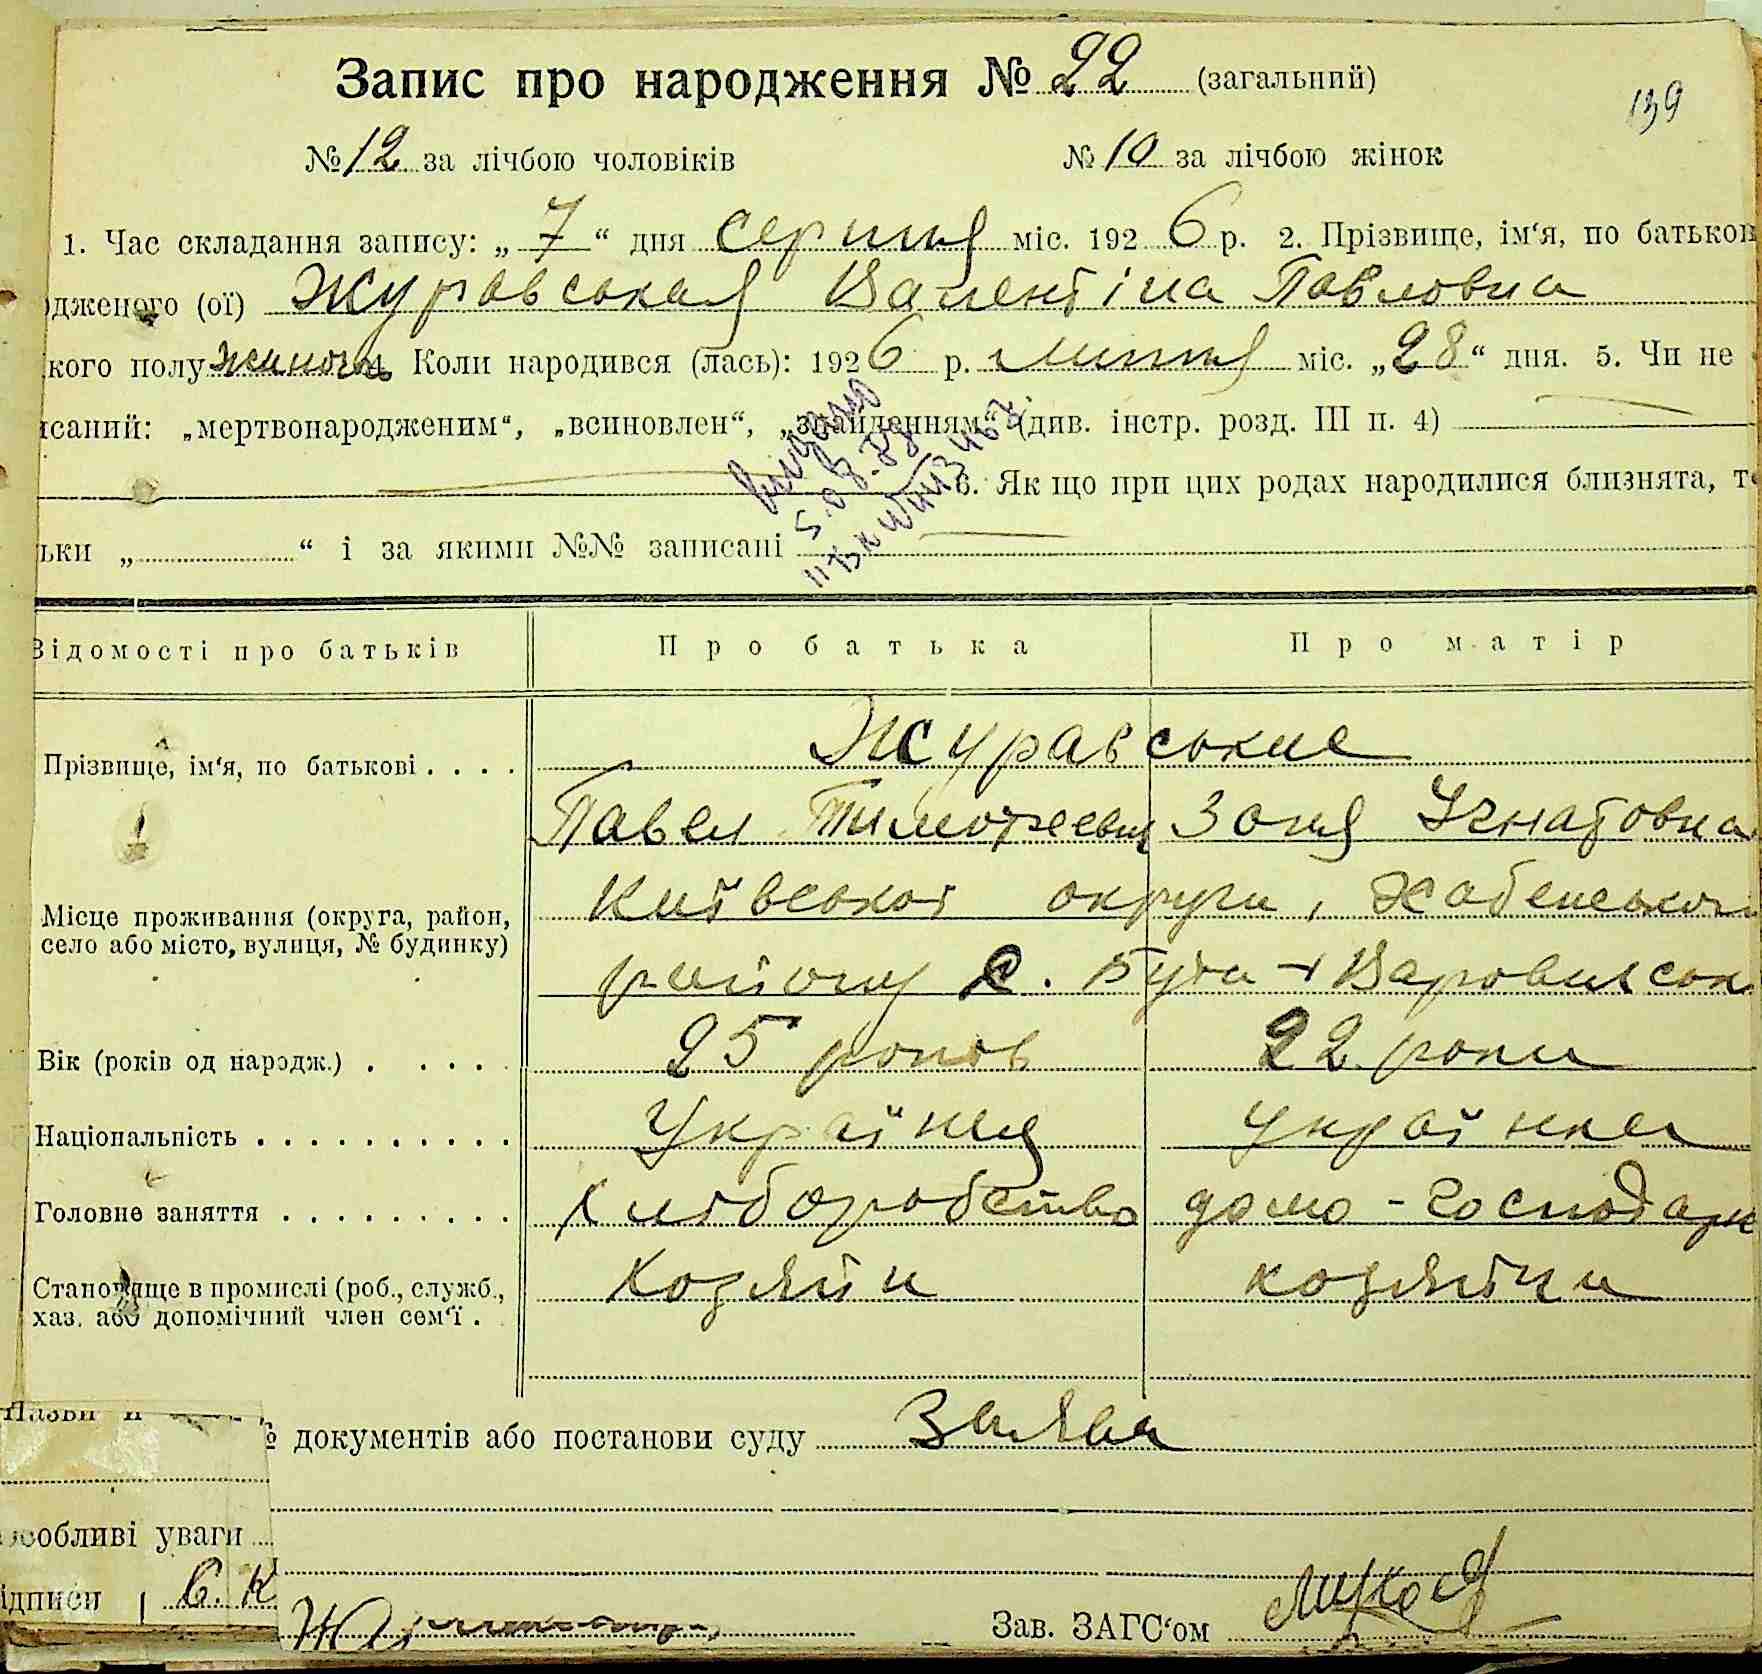 Запис про народження № 22 (загальний)
139
№ 12 за лічбою чоловіків № 10 за лічбою жінок
1. Час складання запису: „ 7 “ дня серпня міс. 192 6 р. 2. Прізвище, ім‘я, по батьков
дженого (ої) Журавская Валентіна Павловна
кого полу жиночи Коли народився (лась): 192 6 р. липня міс. „ 28 “ дня. 5. Чи не
исаний: „мертвонародженим“, „всиновлен“, „знайденням“ (див. інстр. розд. III п. 4)
6. Як що при цих родах народилися близнята, т
ьки „ “ і за якими №№ записані
Відомості про батьків Про батька Про матір
Прізвище, ім‘я, по батькові . . . . Журавськие
Павел Тимофеевич Зоня Игнатовна
Місце проживання (округа, район, Київської округи, Хабенського
село або місто, вулиця, № будинку)
району с. Буда - Варовил сок.
Вік (років од народж.) . . . . . 25 років 22 роки
Національність . . . . . . . . . . Українец українка
Головне заняття . . . . . . . . . Хліборобство домо - господарк
Становище в промислі (роб., служб., Хозяїн хозяїчи
хаз. або допомічний член сем‘ї .
Назви й
№ документів або постанови суду Заява
Особливі уваги
ідписи С. К
Зав. ЗАГС‘ом